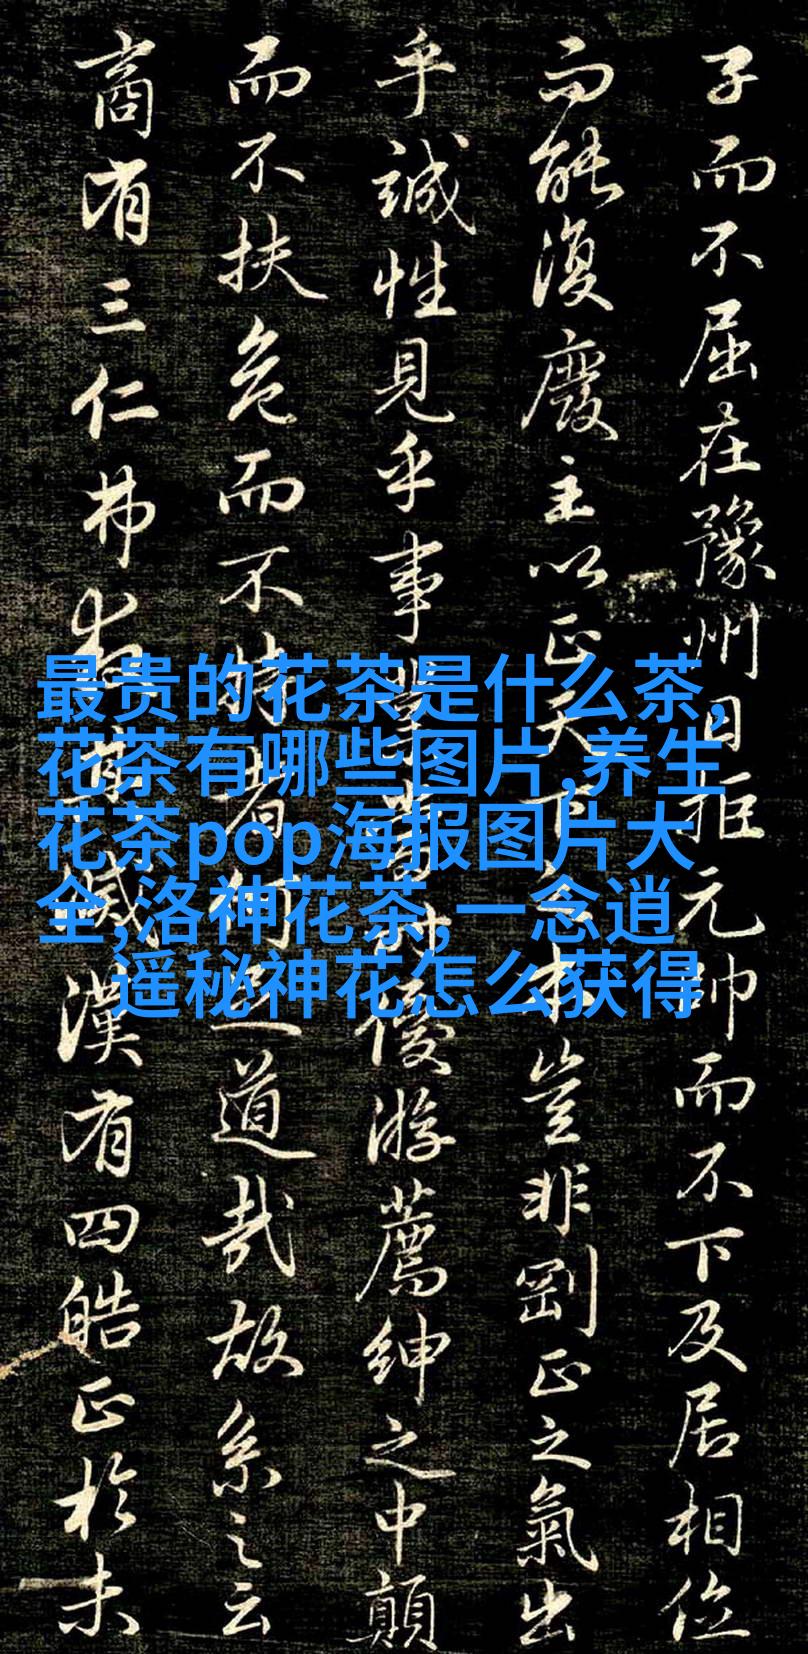 子而不屈在豫州日拒元帥而不下及居相位
而能復廢主以正天下之本豈非剛正之氣出
乎誠性見乎事業當時優游薦紳之中顛
而不扶危而不持者何足道哉故系之云
商有三仁弗救其滅漢有四皓正於未
最贵的花茶是什么茶,
花茶有哪些图片,养生
花茶pop海报图片大
全,洛神花茶,一念逍
遥秘神花怎么获得